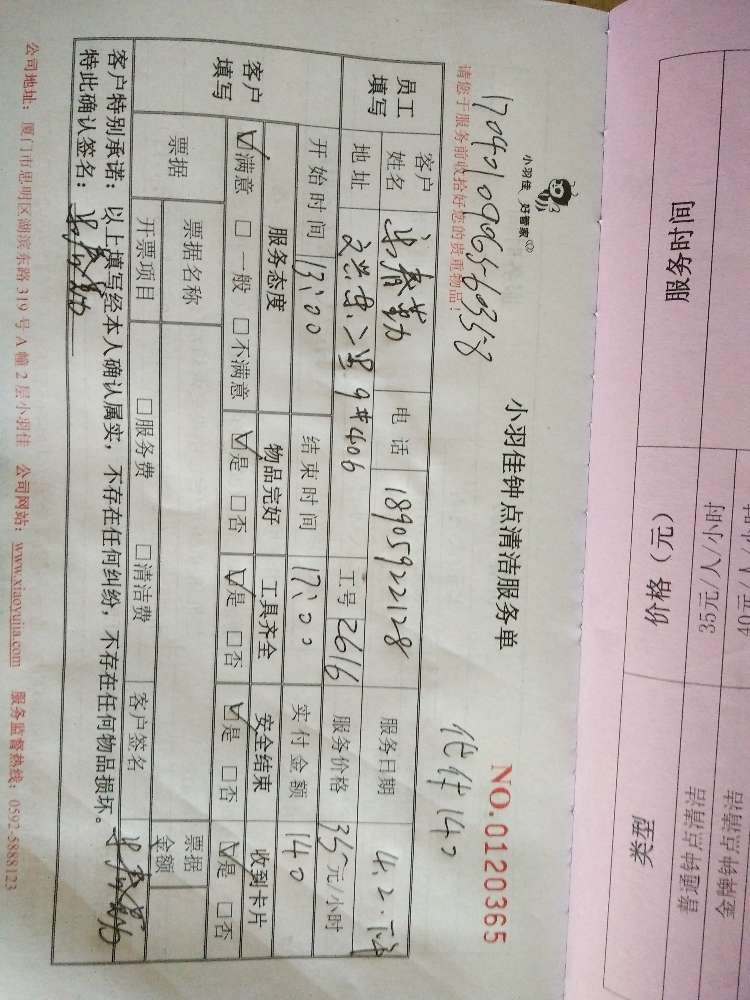 小羽佳 好管家
小羽佳钟点清洁服务单
NO.0120365
请您于服务前收拾好您的贵重物品！
代付140
员工填写
客户姓名
电话 18905922128
服务日期
地址
9#406
工号 2616
服务价格 35元/小时
客户填写
开始时间 13:00
结束时间 17:00
实付金额 140
服务态度 物品完好 工具齐全 安全结束 收到卡片
☑满意 □一般 □不满意 ☑是 □否 ☑是 □否 ☑是 □否 ☑是 □否
票据
票据名称
票据金额
开票项目 □服务费 □清洁费
客户签名
客户特别承诺：以上填写经本人确认属实，不存在任何纠纷，不存在任何物品损坏。
特此确认签名：
公司地址：厦门市思明区湖滨东路319号A幢2层小羽佳 公司网站：www.xiaoyujia.com 服务监督热线：0592-5888123
服务时间
价格（元）
类型
35元/人/小时
普通钟点清洁
金牌钟点清洁